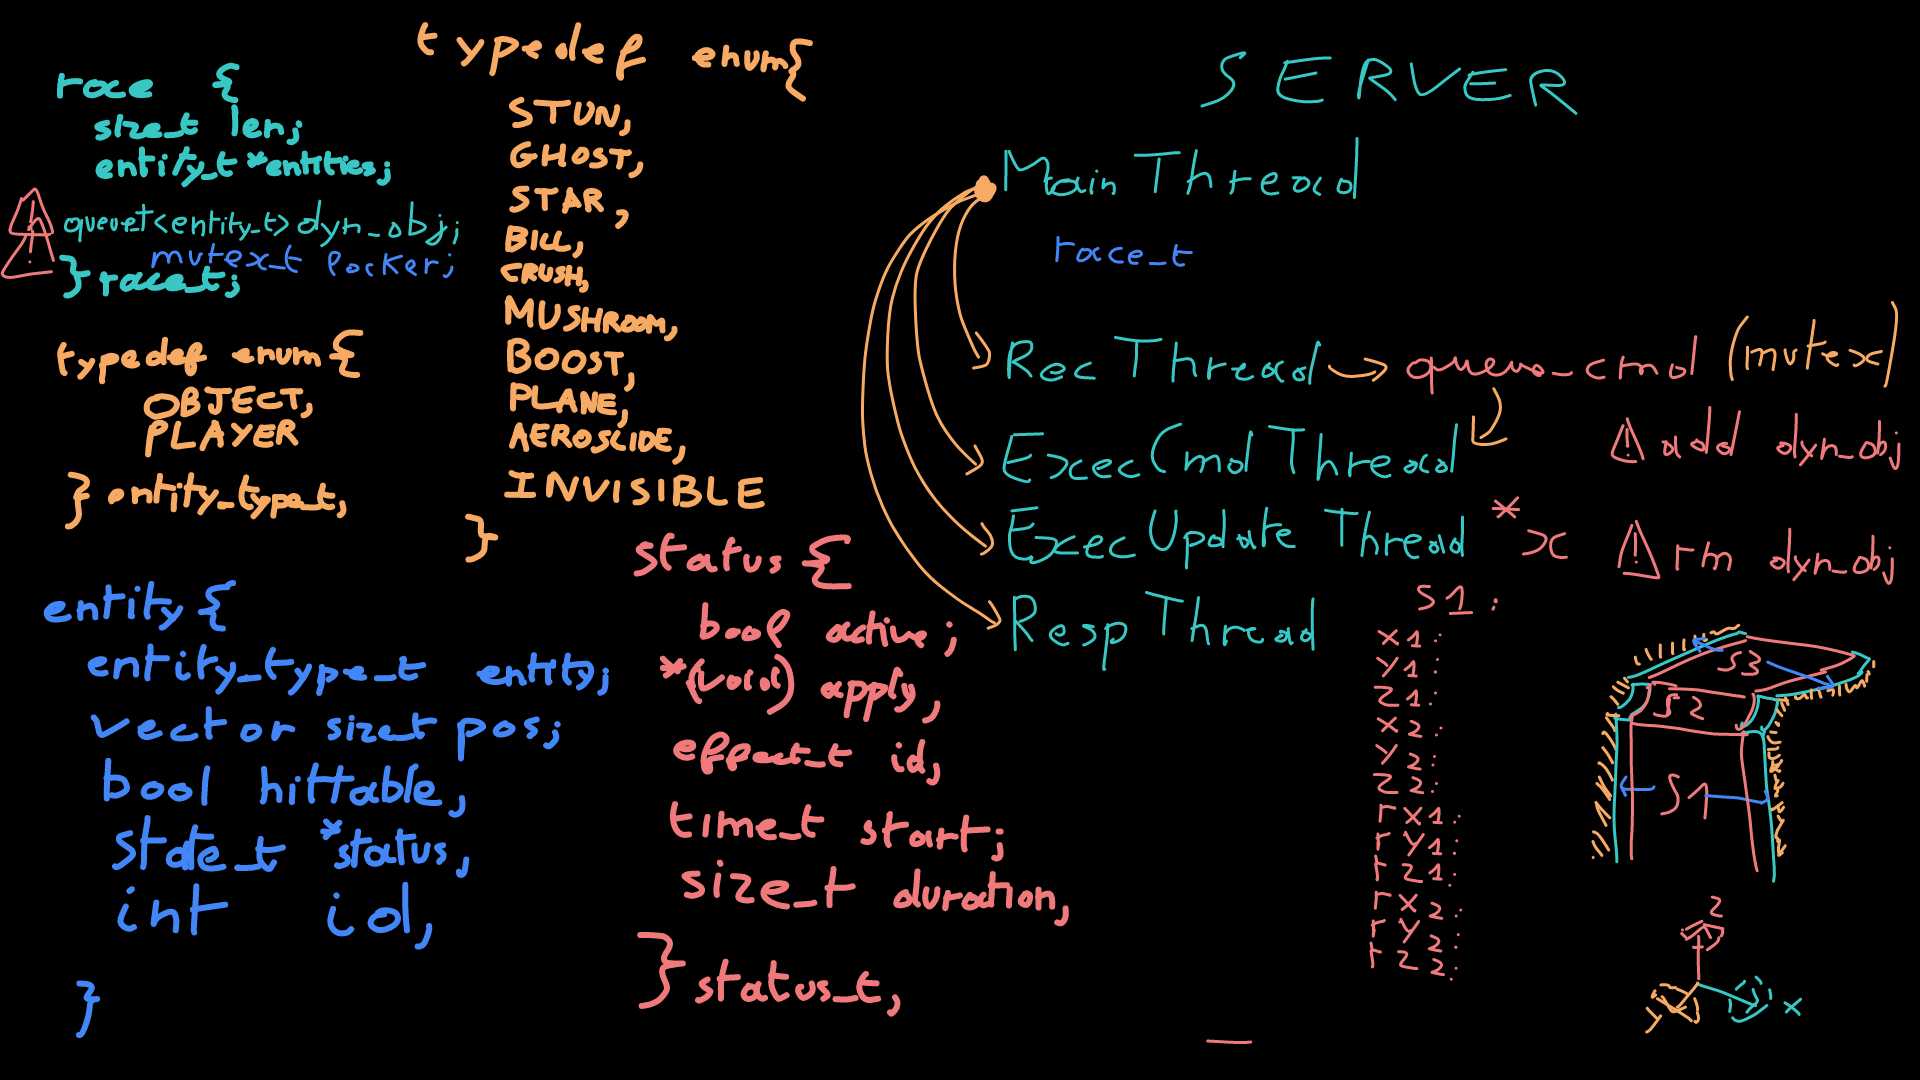 race {
size_t len;
entity_t *entities;
queue_t<entity_t>dyn_obj;
mutex_t locker;
} race_t;
typedef enum {
OBJECT,
PLAYER
} entity_type_t,
entity {
entity_type_t entity;
vector size_t pos;
bool hittable,
state_t *status,
int id,
}
typedef enum{
STUN,
GHOST,
STAR,
BILL,
CRUSH,
MUSHROOM,
BOOST,
PLANE,
AEROSLIDE,
INVISIBLE
}
status {
bool active;
*(void) apply,
effect_t id,
time_t start;
size_t duration,
} status_t,
SERVER
Main Thread
race_t
Rec Thread → (mutex)
Exec Cmd Thread
! add dyn_obj
Exec Update Thread * x
! rm dyn_obj
Resp Thread
S1:
x1:
y1:
z1:
x2:
y2:
z2:
rx1:
ry1:
rz1:
rx2:
ry2:
rz2:
S3
S2
S1
z
y
x